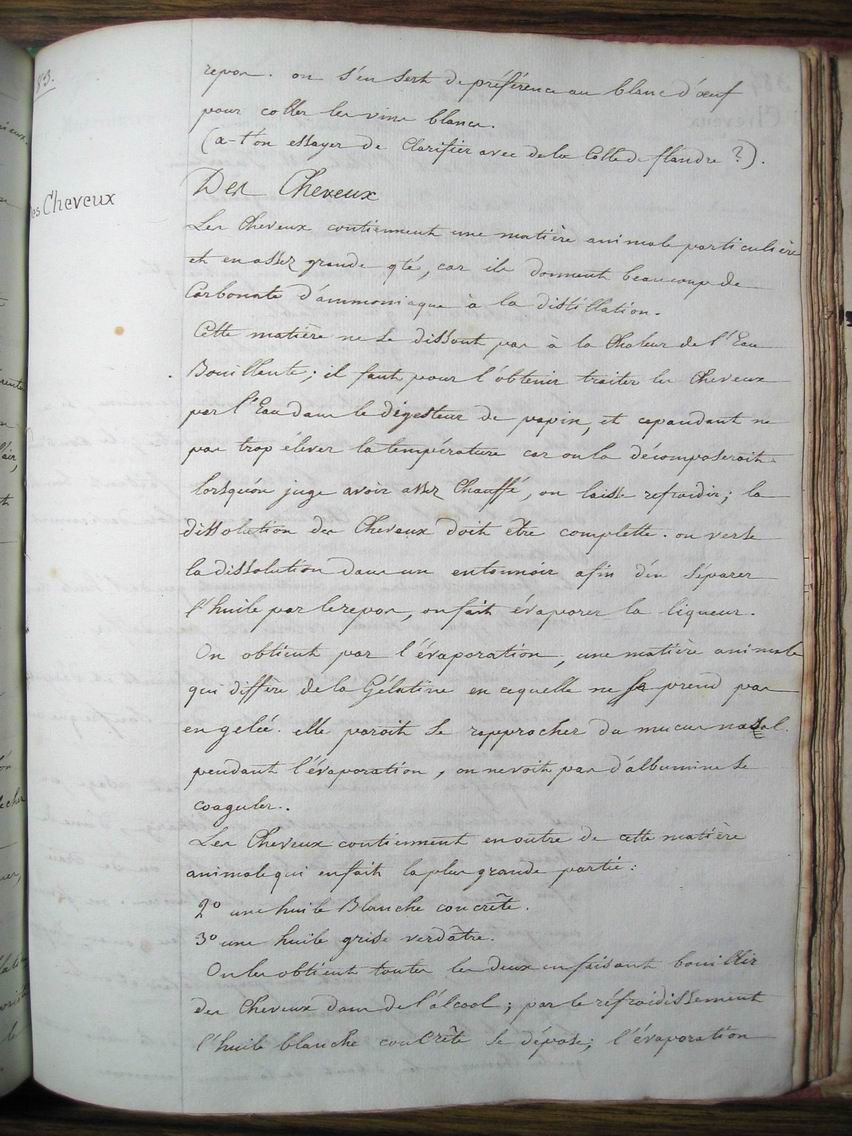 83.
repos. on s'en sert de préférence au blanc d'œuf
pour coller les vins blancs.
(a-t'on essayer de Clarifier avec de la Colle de flandre ?).
Des Cheveux
des Cheveux
Les Cheveux contiennent une matière animale particulière
et en assez grande qté, car ils donnent beaucoup de
Carbonate d'ammoniaque à la distillation.
Cette matière ne se dissout pas à la Chaleur de l'Eau
Bouillante; il faut pour l'obtenir traiter les Cheveux
par l'Eau dans le digesteur de papin, et cependant ne
pas trop élever la température car on la décomposerait.
lorsqu'on juge avoir assez Chauffé, on laisse refroidir; la
dissolution des Cheveux doit être complette. on verse
la dissolution dans un entonnoir afin d'en séparer
l'huile par le repos, on fait évaporer la liqueur.
On obtient par l'évaporation, une matière animale
qui diffère de la Gélatine en ce qu'elle ne se prend pas
en gelée. elle paroit se rapprocher du mucus nasal.
pendant l'évaporation, on ne voit pas d'albumine se
coaguler..
Les Cheveux contiennent en outre de cette matière
animale qui en fait la plus grande partie:
2° une huile Blanche concrète.
3° une huile grise verdâtre.
On les obtient toutes les deux en faisant bouillir
des Cheveux dans de l'alcool; par le réfroidissement
l'huile blanche concrête se dépose; l'évaporation